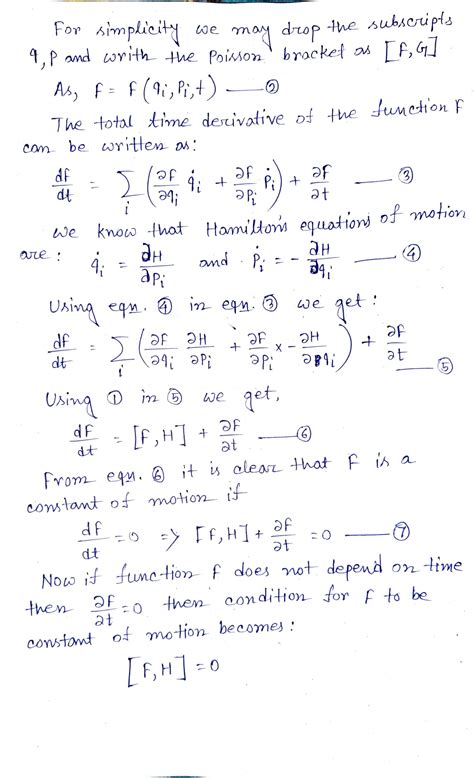 For simplicity we may drop the subscripts
q, p and writh the Poisson bracket as [F,G]
As, F = F(qi, Pi, t) —②
The total time derivative of the function F
can be written as:
dF/dt = Σi (∂F/∂qi q̇i + ∂F/∂Pi Ṗi) + ∂F/∂t —③
We know that Hamilton's equations of motion
are: q̇i = ∂H/∂Pi and Ṗi = - ∂H/∂qi —④
Using eqn. ④ in eqn. ③ we get:
dF/dt = Σi (∂F/∂qi ∂H/∂Pi + ∂F/∂Pi × - ∂H/∂qi) + ∂F/∂t —⑤
Using ① in ⑤ we get,
dF/dt = [F,H] + ∂F/∂t —⑥
From eqn. ⑥ it is clear that F is a
constant of motion if
dF/dt = 0 => [F,H] + ∂F/∂t = 0 —⑦
Now if function F does not depend on time
then ∂F/∂t = 0 then condition for F to be
constant of motion becomes:
[F,H] = 0